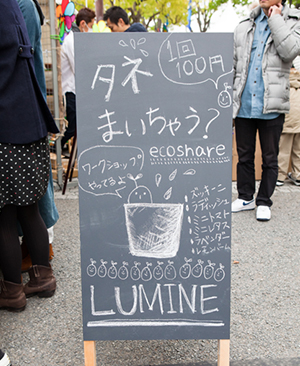 タネ
1回
100円
まいちゃう?
ecoshare
ワークショップ
やってるよ
ズッキーニ
ラディッシュ
ミニトマト
ミニレタス
ラベンダー
レモンバーム
LUMINE